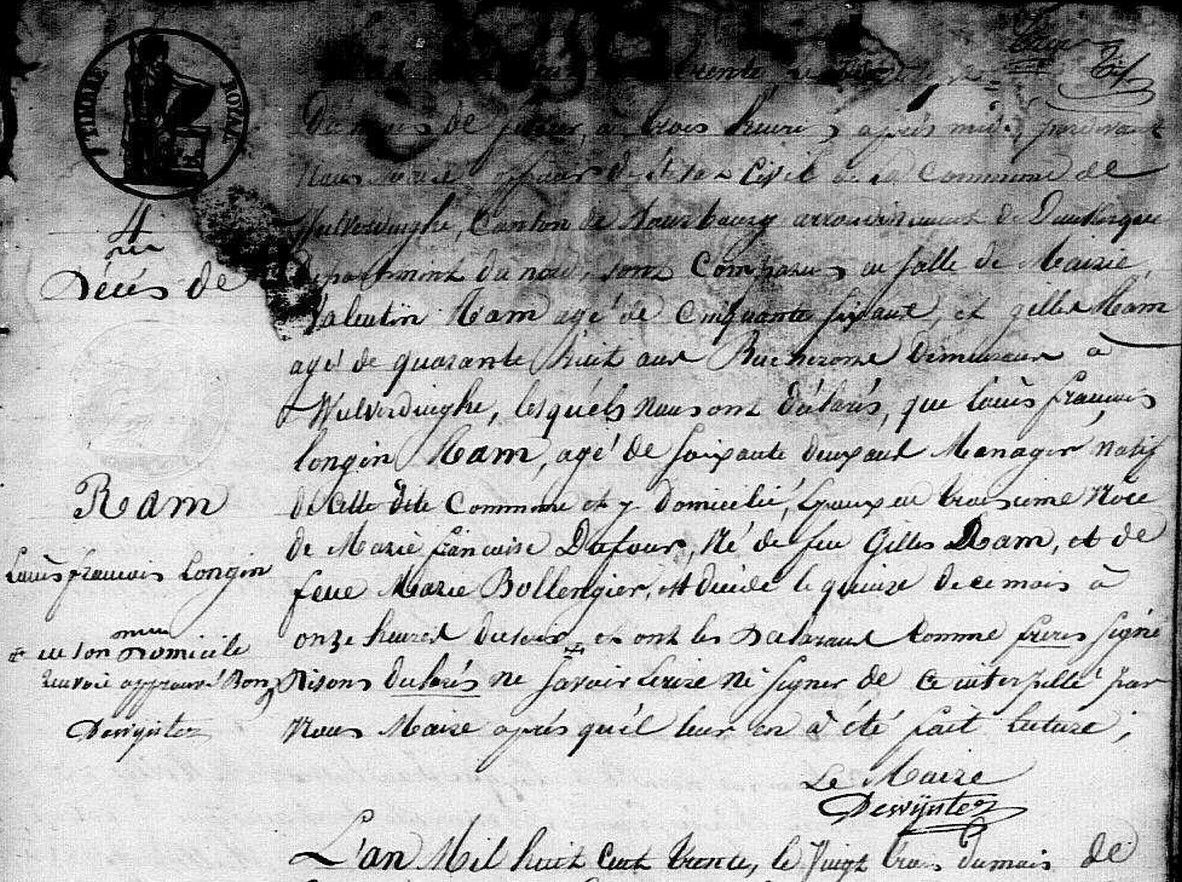 TIMBRE ROYAL
4
Décès de
Ram
Louis francois Longin
en son domicile
renvoi approuvé Bon
Dewynter
trente,
du mois de janvier, a trois heures après midi, pardevant
Nous Maire, officier de l'état Civil de la Commune de
Wulverdinghe, Canton de Bourbourg arrondissement de Dunkerque
département du nord, sont Comparus en salle de Mairie,
Valentin Ram agé de Cinquante six ans, et gilles Ram
agé de quarante huit ans Bucherons demeurans à
Wulverdinghe, lesquels Nous ont déclarés, que Louis françois
longin Ram, agé de soixante deux ans Menager Natif
de cette dite Commune et y domicilié, Epoux en troisieme Noce
de Marie françoise Dafour, Né de feu Gilles Ram, et de
feue Marie Bollengier, est décidé le quinze de ce mois à
onze heures du soir, et ont les Déclarans Comme freres signé
disons déclarés ne savoir Ecrire Ni signer de ce interpellé par
Nous Maire après qu'il leur en à été fait lecture ;
Le Maire
Dewynter
L'an Mil huit Cent trente, le Vingt trois du mois de